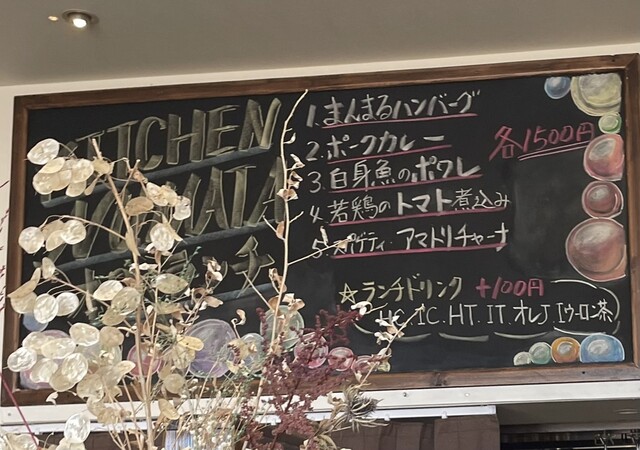 KITCHEN
1. まんまるハンバーグ
2. ポークカレー
3. 白身魚のポワレ
4. 若鶏のトマト煮込み
5. スパゲティ アマトリチャーナ
各1500円
☆ランチドリンク +100円
HC. IC. HT. IT. オレJ
ウーロン茶